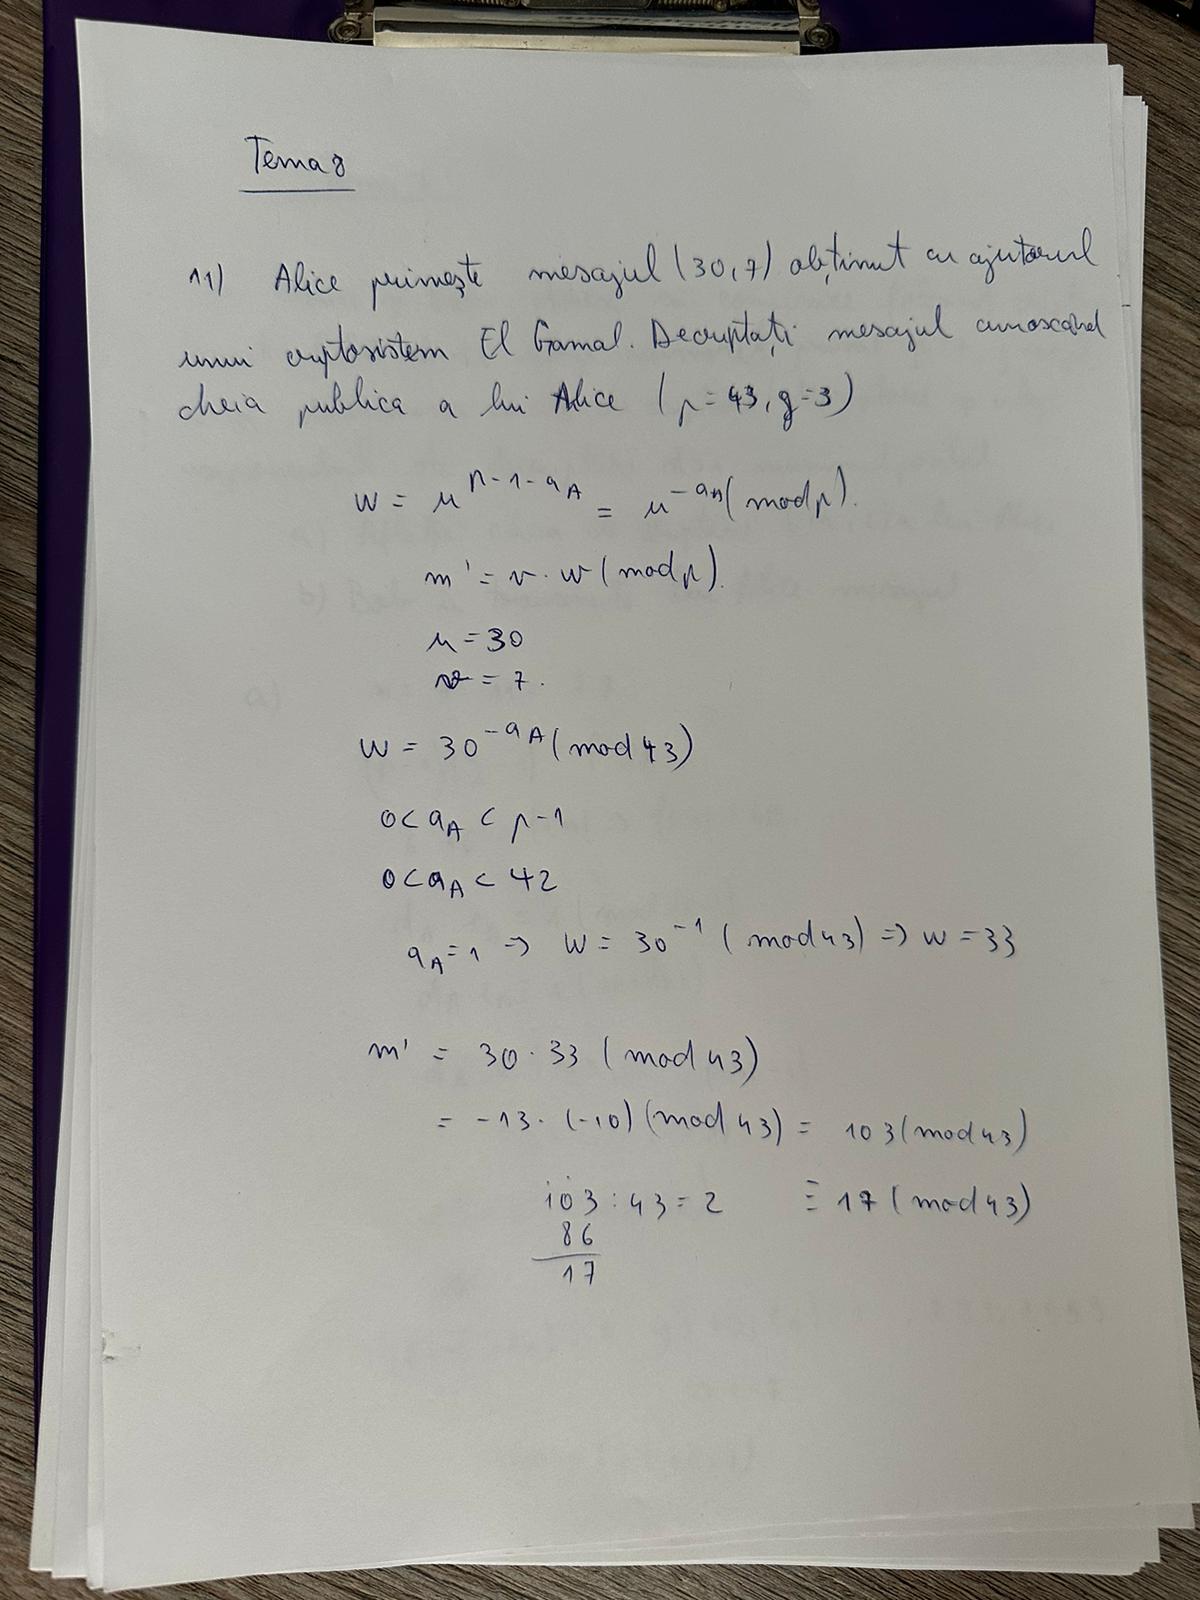 Tema 8
11) Alice primește mesajul (30,7) obținut cu ajutorul
unui criptosistem El Gamal. Decriptați mesajul cunoscând
cheia publica a lui Alice (p=43, g=3)
w = u^{p-1-a_A} = u^{-a_A} (mod p).
m' = v · w (mod p).
u = 30
v = 7.
w = 30^{-a_A} (mod 43)
0 < a_A < p-1
0 < a_A < 42
a_A = 1 => w = 30^{-1} (mod 43) => w = 33
m' = 30 · 33 (mod 43)
= -13 · (-10) (mod 43) = 103 (mod 43)
103 : 43 = 2 ≡ 17 (mod 43)
86
17